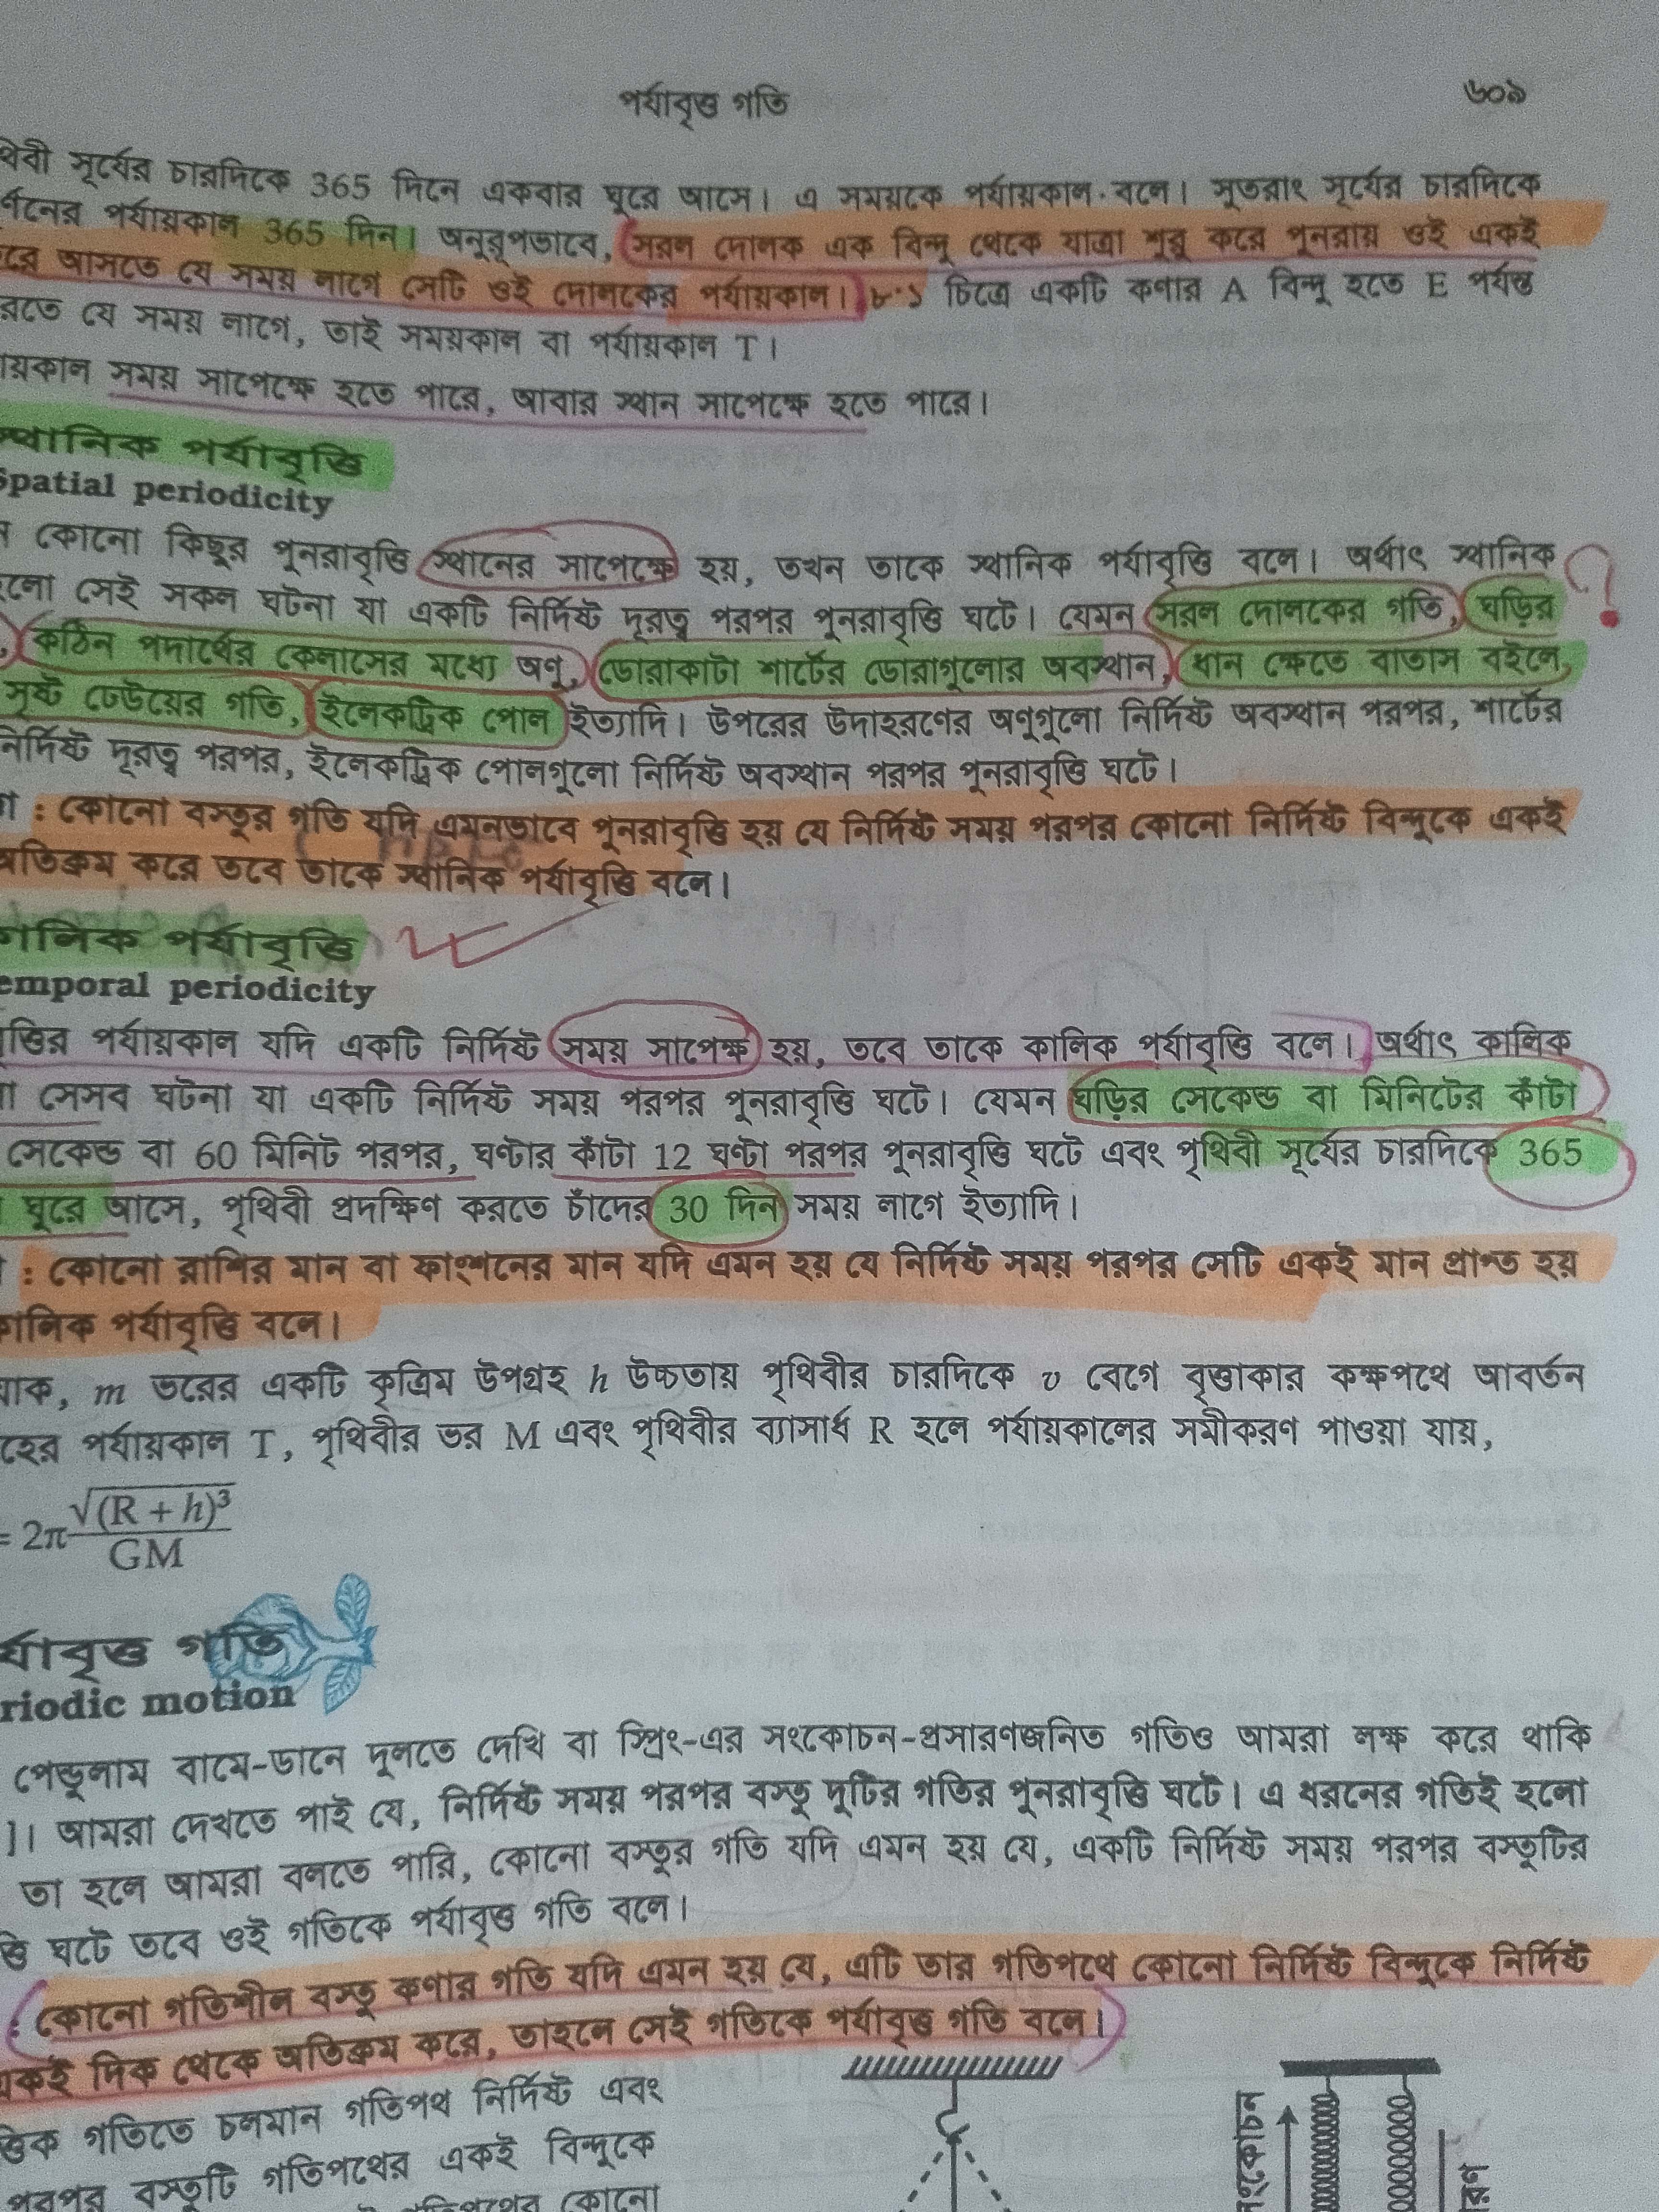 পর্যাবৃত্ত গতি ৬০৯
থিবী সূর্যের চারদিকে 365 দিনে একবার ঘুরে আসে। এ সময়কে পর্যায়কাল বলে। সুতরাং সূর্যের চারদিকে
র্ণনের পর্যায়কাল 365 দিন। অনুরূপভাবে, সরল দোলক এক বিন্দু থেকে যাত্রা শুরু করে পুনরায় ওই একই
রে আসতে যে সময় লাগে সেটি ওই দোলকের পর্যায়কাল। ৮.১ চিত্রে একটি কণার A বিন্দু হতে E পর্যন্ত
রতে যে সময় লাগে, তাই সময়কাল বা পর্যায়কাল T।
ায়কাল সময় সাপেক্ষে হতে পারে, আবার স্থান সাপেক্ষে হতে পারে।
স্থানিক পর্যাবৃত্তি
Spatial periodicity
ন কোনো কিছুর পুনরাবৃত্তি স্থানের সাপেক্ষে হয়, তখন তাকে স্থানিক পর্যাবৃত্তি বলে। অর্থাৎ স্থানিক ?
হলো সেই সকল ঘটনা যা একটি নির্দিষ্ট দূরত্ব পরপর পুনরাবৃত্তি ঘটে। যেমন সরল দোলকের গতি, ঘড়ির
, কঠিন পদার্থের কেলাসের মধ্যে অণু, ডোরাকাটা শার্টের ডোরাগুলোর অবস্থান, ধান ক্ষেতে বাতাস বইলে,
সৃষ্ট ঢেউয়ের গতি, ইলেকট্রিক পোল ইত্যাদি। উপরের উদাহরণের অণুগুলো নির্দিষ্ট অবস্থান পরপর, শার্টের
নির্দিষ্ট দূরত্ব পরপর, ইলেকট্রিক পোলগুলো নির্দিষ্ট অবস্থান পরপর পুনরাবৃত্তি ঘটে।
া : কোনো বস্তুর গতি যদি এমনভাবে পুনরাবৃত্তি হয় যে নির্দিষ্ট সময় পরপর কোনো নির্দিষ্ট বিন্দুকে একই
অতিক্রম করে তবে তাকে স্থানিক পর্যাবৃত্তি বলে।
কালিক পর্যাবৃত্তি
emporal periodicity
ৃত্তির পর্যায়কাল যদি একটি নির্দিষ্ট সময় সাপেক্ষ হয়, তবে তাকে কালিক পর্যাবৃত্তি বলে। অর্থাৎ কালিক
া সেসব ঘটনা যা একটি নির্দিষ্ট সময় পরপর পুনরাবৃত্তি ঘটে। যেমন ঘড়ির সেকেন্ড বা মিনিটের কাঁটা
সেকেন্ড বা 60 মিনিট পরপর, ঘণ্টার কাঁটা 12 ঘণ্টা পরপর পুনরাবৃত্তি ঘটে এবং পৃথিবী সূর্যের চারদিকে 365
ঘুরে আসে, পৃথিবী প্রদক্ষিণ করতে চাঁদের 30 দিন সময় লাগে ইত্যাদি।
: কোনো রাশির মান বা ফাংশনের মান যদি এমন হয় যে নির্দিষ্ট সময় পরপর সেটি একই মান প্রাপ্ত হয়
কালিক পর্যাবৃত্তি বলে।
যাক, m ভরের একটি কৃত্রিম উপগ্রহ h উচ্চতায় পৃথিবীর চারদিকে v বেগে বৃত্তাকার কক্ষপথে আবর্তন
হের পর্যায়কাল T, পৃথিবীর ভর M এবং পৃথিবীর ব্যাসার্ধ R হলে পর্যায়কালের সমীকরণ পাওয়া যায়,
= 2π √(R + h)³ / GM
র্যাবৃত্ত গতি
riodic motion
পেন্ডুলাম বামে-ডানে দুলতে দেখি বা স্প্রিং-এর সংকোচন-প্রসারণজনিত গতিও আমরা লক্ষ করে থাকি
]। আমরা দেখতে পাই যে, নির্দিষ্ট সময় পরপর বস্তু দুটির গতির পুনরাবৃত্তি ঘটে। এ ধরনের গতিই হলো
তা হলে আমরা বলতে পারি, কোনো বস্তুর গতি যদি এমন হয় যে, একটি নির্দিষ্ট সময় পরপর বস্তুটির
ত্তি ঘটে তবে ওই গতিকে পর্যাবৃত্ত গতি বলে।
: কোনো গতিশীল বস্তু কণার গতি যদি এমন হয় যে, এটি তার গতিপথে কোনো নির্দিষ্ট বিন্দুকে নির্দিষ্ট
একই দিক থেকে অতিক্রম করে, তাহলে সেই গতিকে পর্যাবৃত্ত গতি বলে।
ত্তিক গতিতে চলমান গতিপথ নির্দিষ্ট এবং
পরপর বস্তুটি গতিপথের একই বিন্দুকে
গতিপথের কোনো
ংকোচন
ারণ